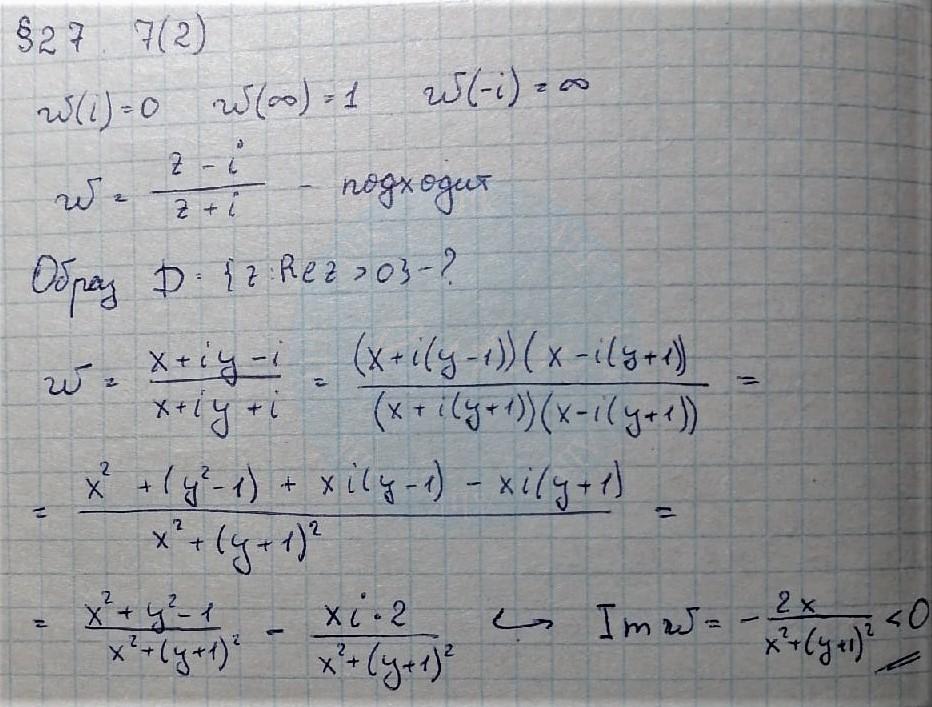 §27. 7(2)
w(i)=0 w(∞)=1 w(-i)=∞
w = (z-i)/(z+i) - подходит
Образ D = {z: Re z > 0} - ?
w = (x+iy-i)/(x+iy+i) = ((x+i(y-1))(x-i(y+1)))/((x+i(y+1))(x-i(y+1))) =
= (x²+(y²-1)+xi(y-1)-xi(y+1))/(x²+(y+1)²) =
= (x²+y²-1)/(x²+(y+1)²) - (xi·2)/(x²+(y+1)²) ↪ Im w = -2x/(x²+(y+1)²) < 0